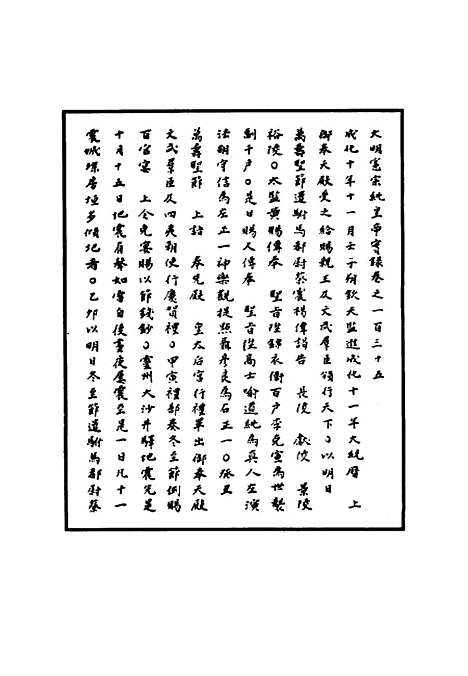 大明憲宗純皇帝實錄卷之一百三十五
成化十年十一月壬子朔欽天監進成化十一年大統曆　上
御奉天殿受之給賜親王及文武羣臣頒行天下○以明日
萬壽聖節遣駙馬都尉蔡震楊偉謁告　長陵　獻陵　景陵
裕陵○太監黃賜傳奉　聖旨陞錦衣衛百戶李免寘為世襲
副千戶○是日賜又傳奉　聖旨陞高士喻道純為真人左演
法胡守信為左正一神樂觀提點聶彥良為右正一○癸丑
萬壽聖節　上詣　奉先殿　皇太后宮行禮畢出御奉天殿
文武羣臣及四夷朝使行慶賀禮○甲寅禮部奏冬至節例賜
百官宴　上命免宴賜以節錢鈔○靈州大沙井驛地震先是
十月十五日地震有聲如雷自後晝夜屢震至是一日凡十一
震城堞房垣多傾圮者○乙卯以明日冬至節遣駙馬都尉蔡